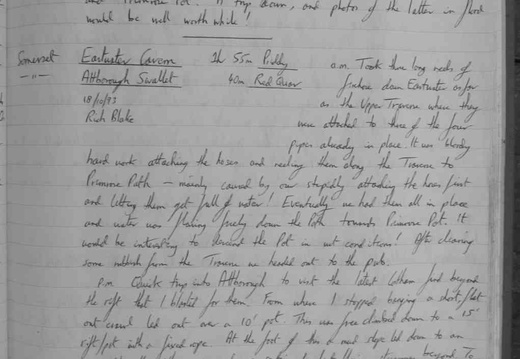 and Primrose Pot. A trip down, and photos of the latter in flood
would be well worth while!
Somerset Eastwater Cavern 2h 55m Priddy a.m. Took three long reels of
—"— Attborough Swallet 40m Red Quar firehose down Eastwater as far
18/10/93 as the Upper Traverse where they
Rich Blake were attached to three of the four
pipes already in place. It was bloody
hard work attaching the hoses and reeling them along the Traverse to
Primrose Path – mainly caused by our stupidly attaching the hoses first
and letting them get full of water! Eventually we had them all in place
and water was flowing freely down the Path towards Primrose Pot. It
would be interesting to descend the Pot in wet conditions! After clearing
some rubbish from the Traverse we headed out to the pub.
p.m. Quick trip into Attborough to visit the latest Cotham find beyond
the rift that I blasted for them. From where I stopped banging a short, flat
out crawl led out over a 10' pot. This was free climbed down to a 15'
rift/pot with a fixed rope. At the foot of this a mud slope led down to an